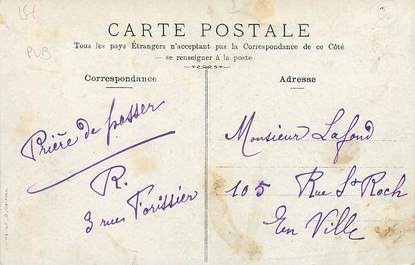 CARTE POSTALE
Tous les pays Étrangers n'acceptant pas la Correspondance de ce Côté
— se renseigner à la poste
Correspondance
Adresse
PUB
Prière de passer
R.
3 rue Forissier
Monsieur Lafond
105 Rue St Roch
En Ville